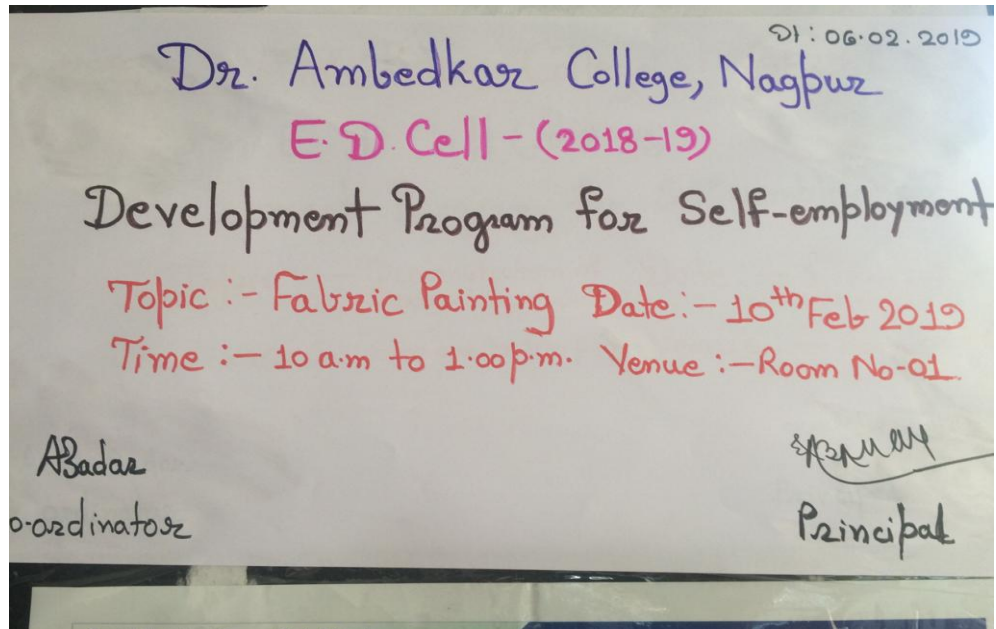 Dt: 06.02.2019
Dr. Ambedkar College, Nagpur
E.D. Cell - (2018-19)
Development Program for Self-employment
Topic :- Fabric Painting Date:- 10th Feb 2019
Time :- 10 a.m to 1.00 p.m. Venue :- Room No-01
ABadar
o-ordinator
Principal